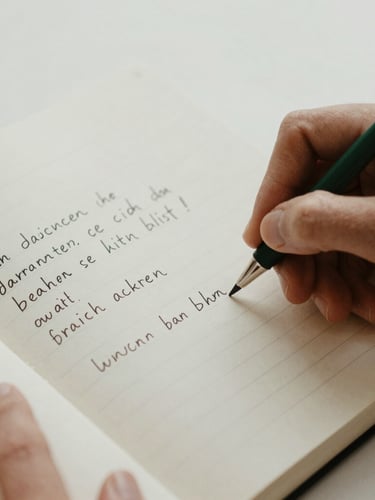 n daicncen the
darrannten. ce cich du
beahon se hitn blist!
owatl.
braich ackren
wncnn ban bhn